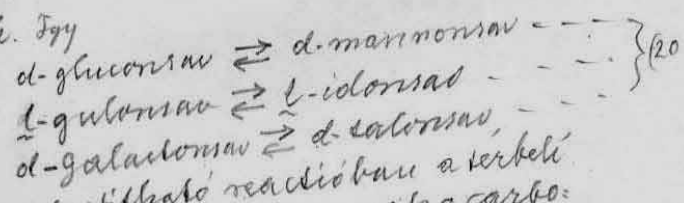 Igy
d-gluconsav ⇄ d-mannonsav - - -
l-gulonsav ⇄ l-idonsav - - - } (20
d-galactonsav ⇄ d-talonsav, - - -
reactióban a térbeli
a carbo=